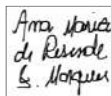 Ana Maria
de Resende
G. Marques